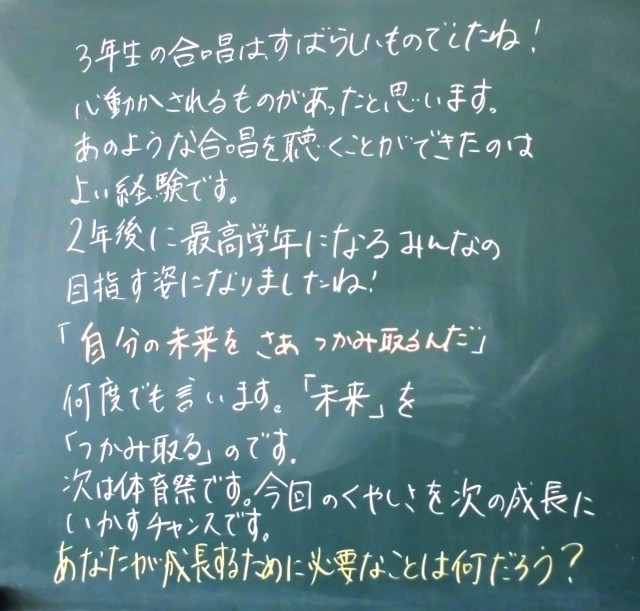 3年生の合唱は、すばらしいものでしたね！
心動かされるものがあったと思います。
あのような合唱を聴くことができたのは
よい経験です。
2年後に最高学年になるみんなの
目指す姿になりましたね！
「自分の未来を さあ つかみ取るんだ」
何度でも言います。「未来」を
「つかみ取る」のです。
次は体育祭です。今回のくやしさを次の成長に
いかすチャンスです。
あなたが成長するために必要なことは何だろう？